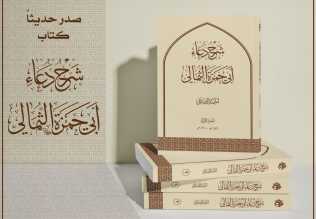 صدر حديثاً
كتاب
شرح دعاء
أبي حمزة الثمالي
شرح دعاء
أبي حمزة الثمالي
شرح دعاء أبي حمزة الثمالي
شرح دعاء أبي حمزة الثمالي
شرح دعاء أبي حمزة الثمالي